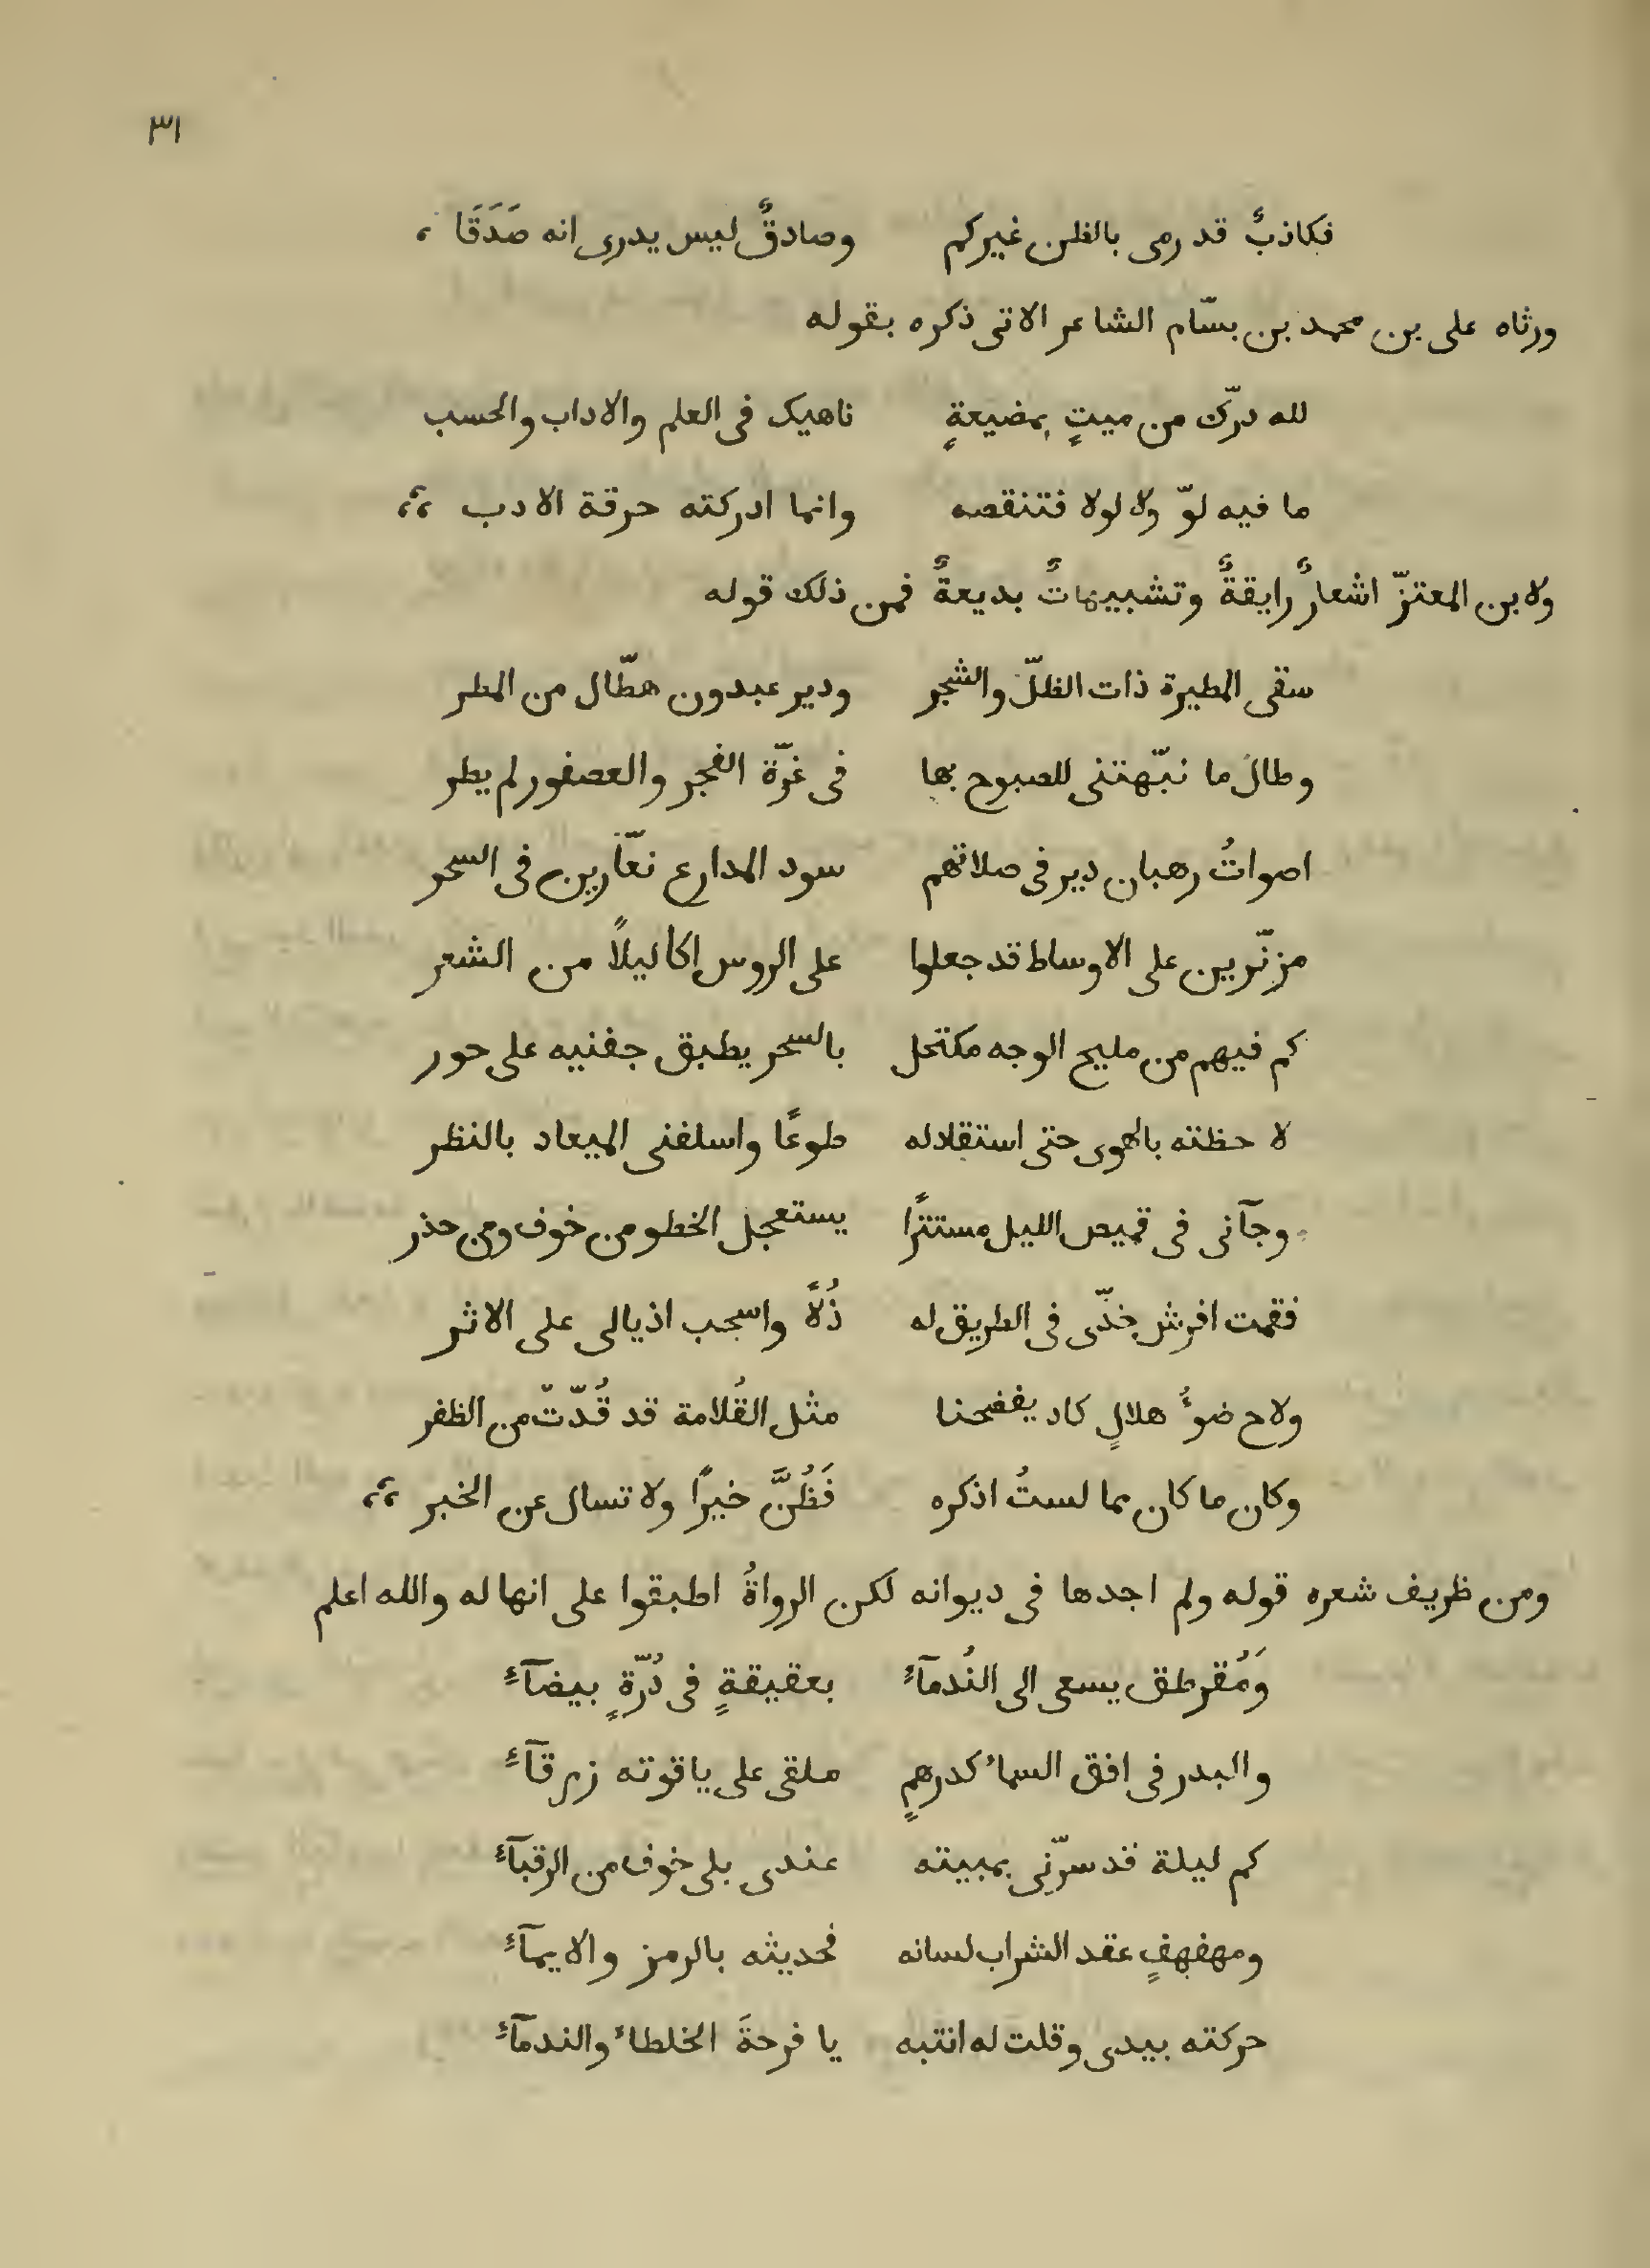 ٣١
فكاذبٌ قد رمى بالظن غيركم وصادقٌ ليس يدرى انه صَدَقَا ؛
ورثاه على بن محمد بن بسّام الشاعر الاتى ذكره بقوله
لله درّك من ميتٍ بمضيعةٍ ناهيك فى العلم والاداب والحسب
ما فيه لوّ ولا لولا فتنقصه وانما ادركته حرقة الادب ؛؛
ولابن المعتزّ اشعارٌ رايقةٌ وتشبيهاتٌ بديعةٌ فمن ذلك قوله
سقى المطيرة ذات الظلّ والشجر ودير عبدون هطّال من المطر
وطالَ ما نبّهتنى للصبوح بها فى غرّة الفجر والعصفور لم يطر
اصواتُ رهبان دير فى صلاتهم سود المدارع نعّارين فى السحر
مزنّرين على الاوساط قد جعلوا على الروس اكاليلاً من الشعر
كم فيهم من مليح الوجه مكتحل بالسحر يطبق جفنيه على حور
لا حظته بالهوى حتى استقادله طوعًا واسلفنى الميعاد بالنظر
وجآنى فى قميص الليل مستترًا يستعجل الخطو من خوف ومن حذر
فقمت افرش خدّى فى الطريق له ذُلاًّ واسحب اذيالى على الاثر
ولاح ضوءُ هلالٍ كاد يفضحنا مثل القُلامة قد قُدّتّ من الظفر
وكان ما كان مما لستُ اذكره فَظُنَّ خيرًا ولا تسال عن الخبر ؛؛
ومن ظريف شعره قوله ولم اجدها فى ديوانه لكن الرواةُ اطبقوا على انها له والله اعلم
وَمُقرطق يسعى الى النُدمآءِ بعقيقةٍ فى دُرّةٍ بيضآءِ
والبدر فى افق السماء كدرهمٍ ملقى على ياقوته زرقآءِ
كم ليلة قد سرّنى بمبيته عندى بلى خوف من الرقبآءِ
ومهفهفٍ عقد الشراب لسانه فحديثه بالرمز والايمآءِ
حركته بيدى وقلت له انتبه يا فرحةَ الخلطاء والندمآءِ